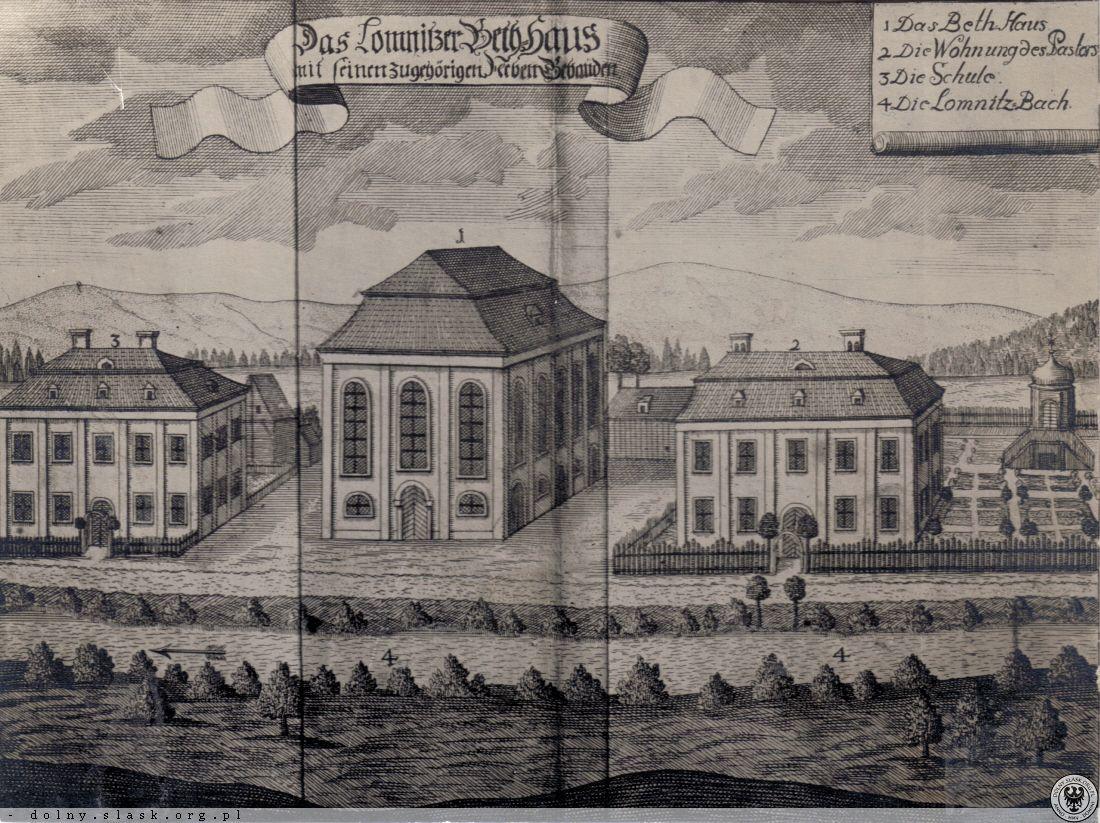 Das Lomnitzer Beth-Haus
mit seinen zugehörigen Neben Gebäuden
1 Das Beth Haus
2 Die Wohnung des Pastors
3 Die Schule.
4 Die Lomnitz Bach.
1
3
2
4
4
- dolny.slask.org.pl